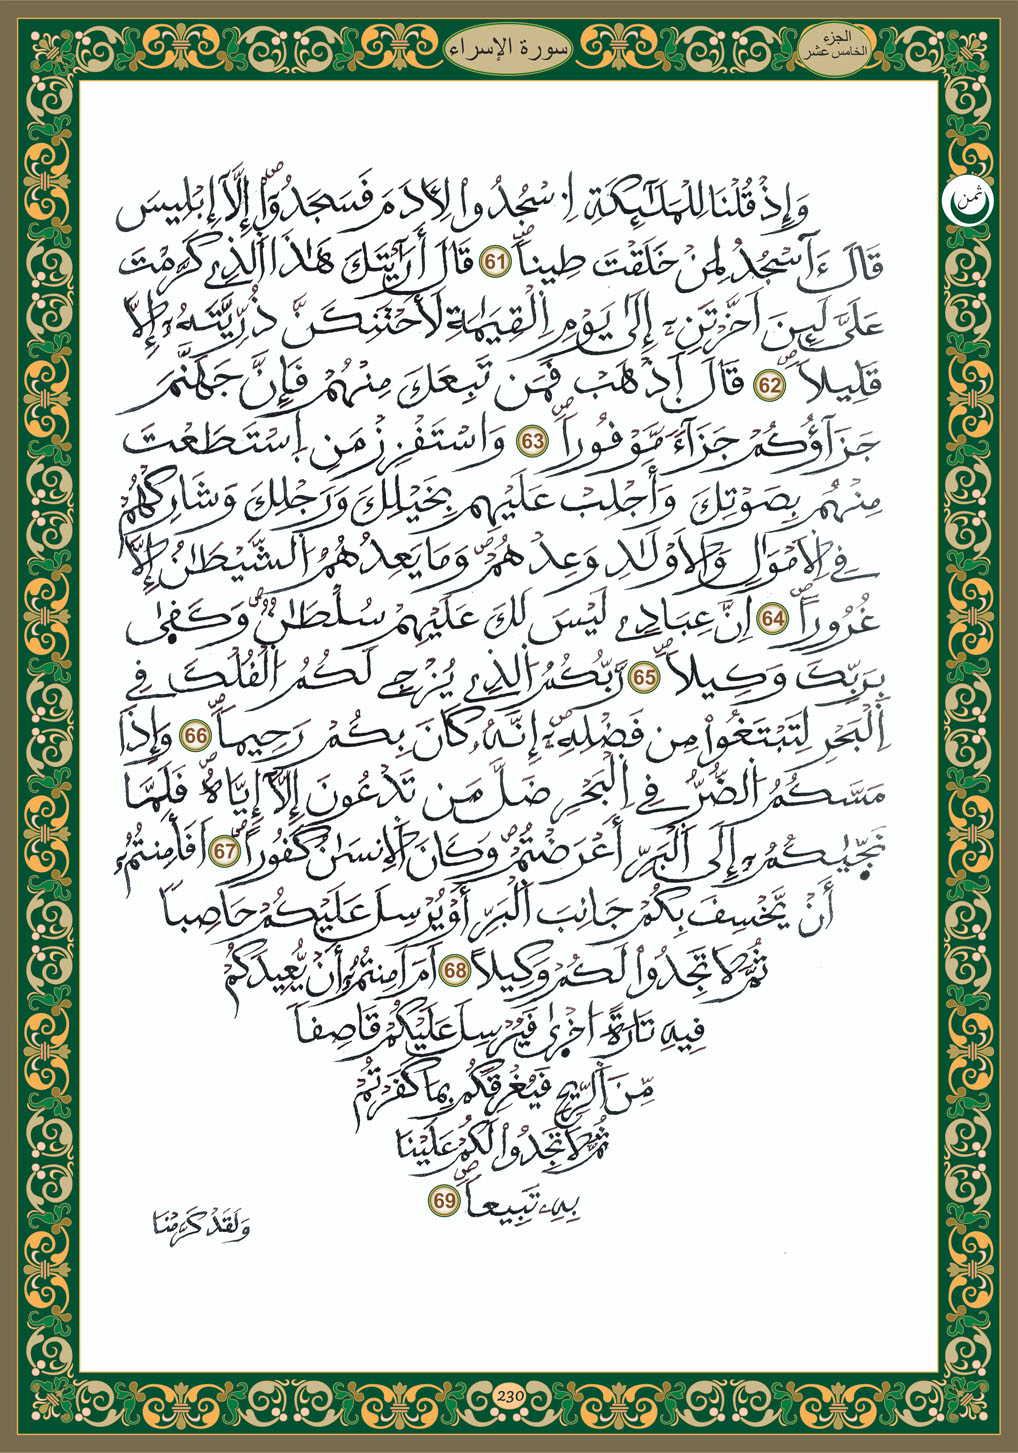 سورة الإسراء
الجزء
الخامس عشر
ثمن
وَإِذْ قُلْنَا لِلْمَلَٰٓئِكَةِ اِ۟سْجُدُوا۟ لِأَدَمَ فَسَجَدُوٓا۟ إِلَّآ إِبْلِيسَ
قَالَ ءَآسْجُدُ لِمَنْ خَلَقْتَ طِيناً 61 قَالَ أَرَٰٓيْتَكَ هَٰذَا اَ۬لذِے كَرَّمْتَ
عَلَىَّ لَئِنَ اَخَّرْتَنِۦٓ إِلَىٰ يَوْمِ اِ۬لْقِيَٰمَةِ لَأَحْتَنِكَنَّ ذُرِّيَّتَهُۥٓ إِلَّا
قَلِيلاً 62 قَالَ اَ۪ذْهَبْ فَمَن تَبِعَكَ مِنْهُمْ فَإِنَّ جَهَنَّمَ
جَزَآؤُكُمْ جَزَآءً مَّوْفُوراً 63 وَاسْتَفْزِزْ مَنِ اِ۪سْتَطَعْتَ
مِنْهُم بِصَوْتِكَ وَأَجْلِبْ عَلَيْهِم بِخَيْلِكَ وَرَجْلِكَ وَشَارِكْهُمْ
فِے اِ۬لَامْوَٰلِ وَالَاوْلَٰدِ وَعِدْهُمْ وَمَا يَعِدُهُمُ اُ۬لشَّيْطَٰنُ إِلَّا
غُرُوراً 64 اِنَّ عِبَادِے لَيْسَ لَكَ عَلَيْهِمْ سُلْطَٰنٌ وَكَفَىٰ
بِرَبِّكَ وَكِيلاً 65 رَّبُّكُمُ اُ۬لذِے يُزْجِے لَكُمُ اُ۬لْفُلْكَ فِے
اِ۬لْبَحْرِ لِتَبْتَغُوا۟ مِن فَضْلِهِۦٓ إِنَّهُۥ كَانَ بِكُمْ رَحِيماً 66 وَإِذَا
مَسَّكُمُ اُ۬لضُّرُّ فِے اِ۬لْبَحْرِ ضَلَّ مَن تَدْعُونَ إِلَّآ إِيَّاهُ فَلَمَّا
نَجَّيٰكُمُۥٓ إِلَى اَ۬لْبَرِّ أَعْرَضْتُمْ وَكَانَ اَ۬لِانسَٰنُ كَفُوراً 67 اَفَأَمِنتُمُۥٓ
أَنْ يَّخْسِفَ بِكُمْ جَانِبَ اَ۬لْبَرِّ أَوْ يُرْسِلَ عَلَيْكُمْ حَاصِباً
ثُمَّ لَا تَجِدُوا۟ لَكُمْ وَكِيلاً 68 اَمَ اَمِنتُمُۥٓ أَنْ يُّعِيدَكُمْ
فِيهِ تَارَةً اُخْر۪ىٰ فَيُرْسِلَ عَلَيْكُمْ قَاصِفاً
مِّنَ اَ۬لرِّيحِ فَيُغْرِقَكُم بِمَا كَفَرْتُمْ
ثُمَّ لَا تَجِدُوا۟ لَكُمْ عَلَيْنَا
بِهِۦ تَبِيعاً 69
وَلَقَدْ كَرَّمْنَا
230